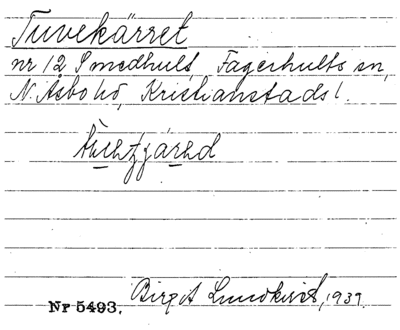 Tuvekärret
nr 12 Smedhult, Fagerhults sn,
N. Åsbo hd, Kristianstads l.
Birgit Lundkvist, 1937.
Nr 5493.